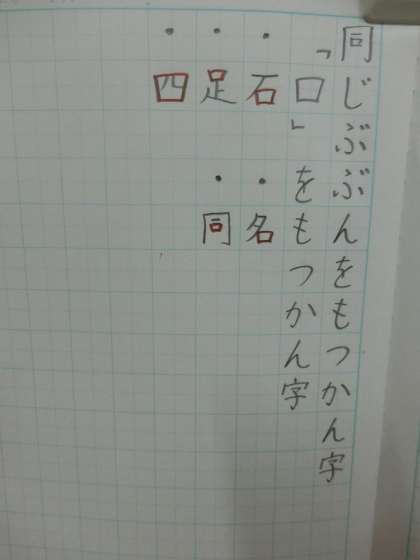 同じぶぶんをもつかん字
「口」をもつかん字
・石・名
・足・同
・四